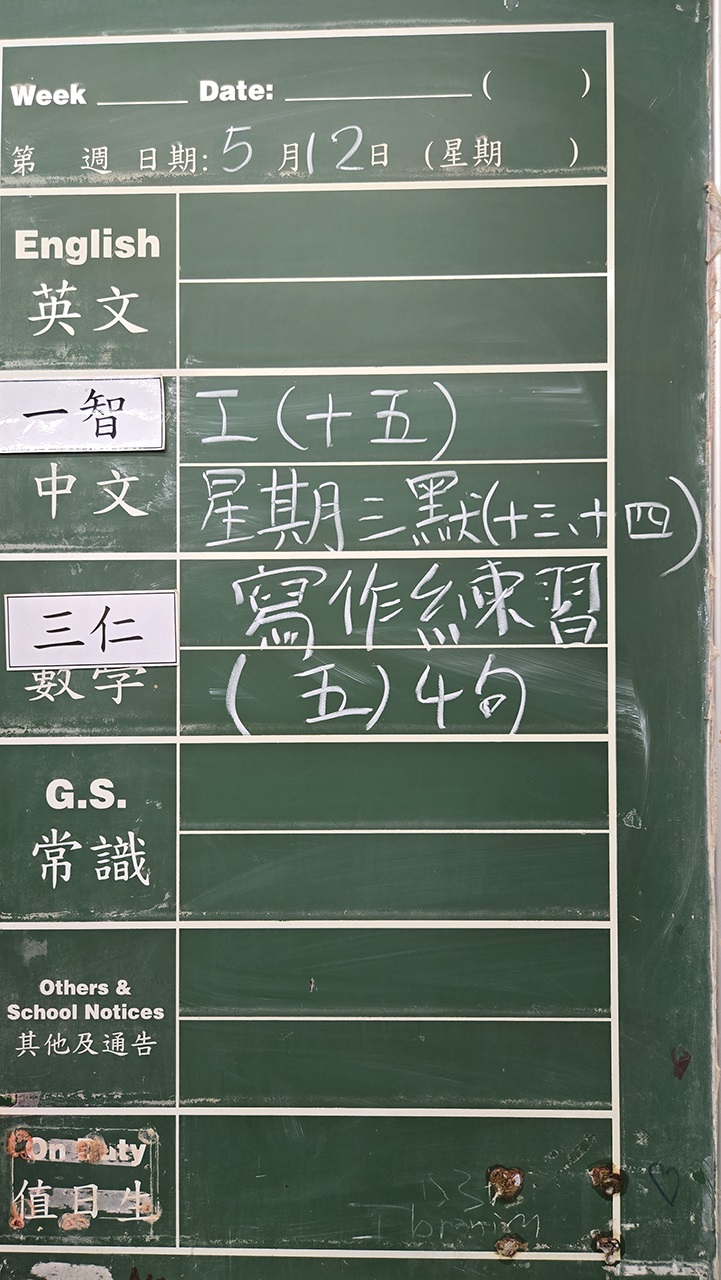 Week ______ Date: ____________ ( )
第 週 日期: 5 月 12 日 (星期 )
English
英文
一智
工(十五)
中文
星期三默(十三、十四)
三仁
寫作練習
數學
(五)4句
G.S.
常識
Others &
School Notices
其他及通告
On Duty
值日生